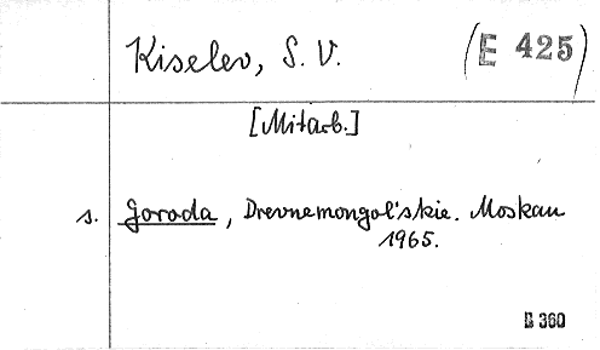 Kiselev, S. V. (E 425)
[Mitarb.]
s. Goroda, Drevnemongol'skie. Moskau
1965.
B 360